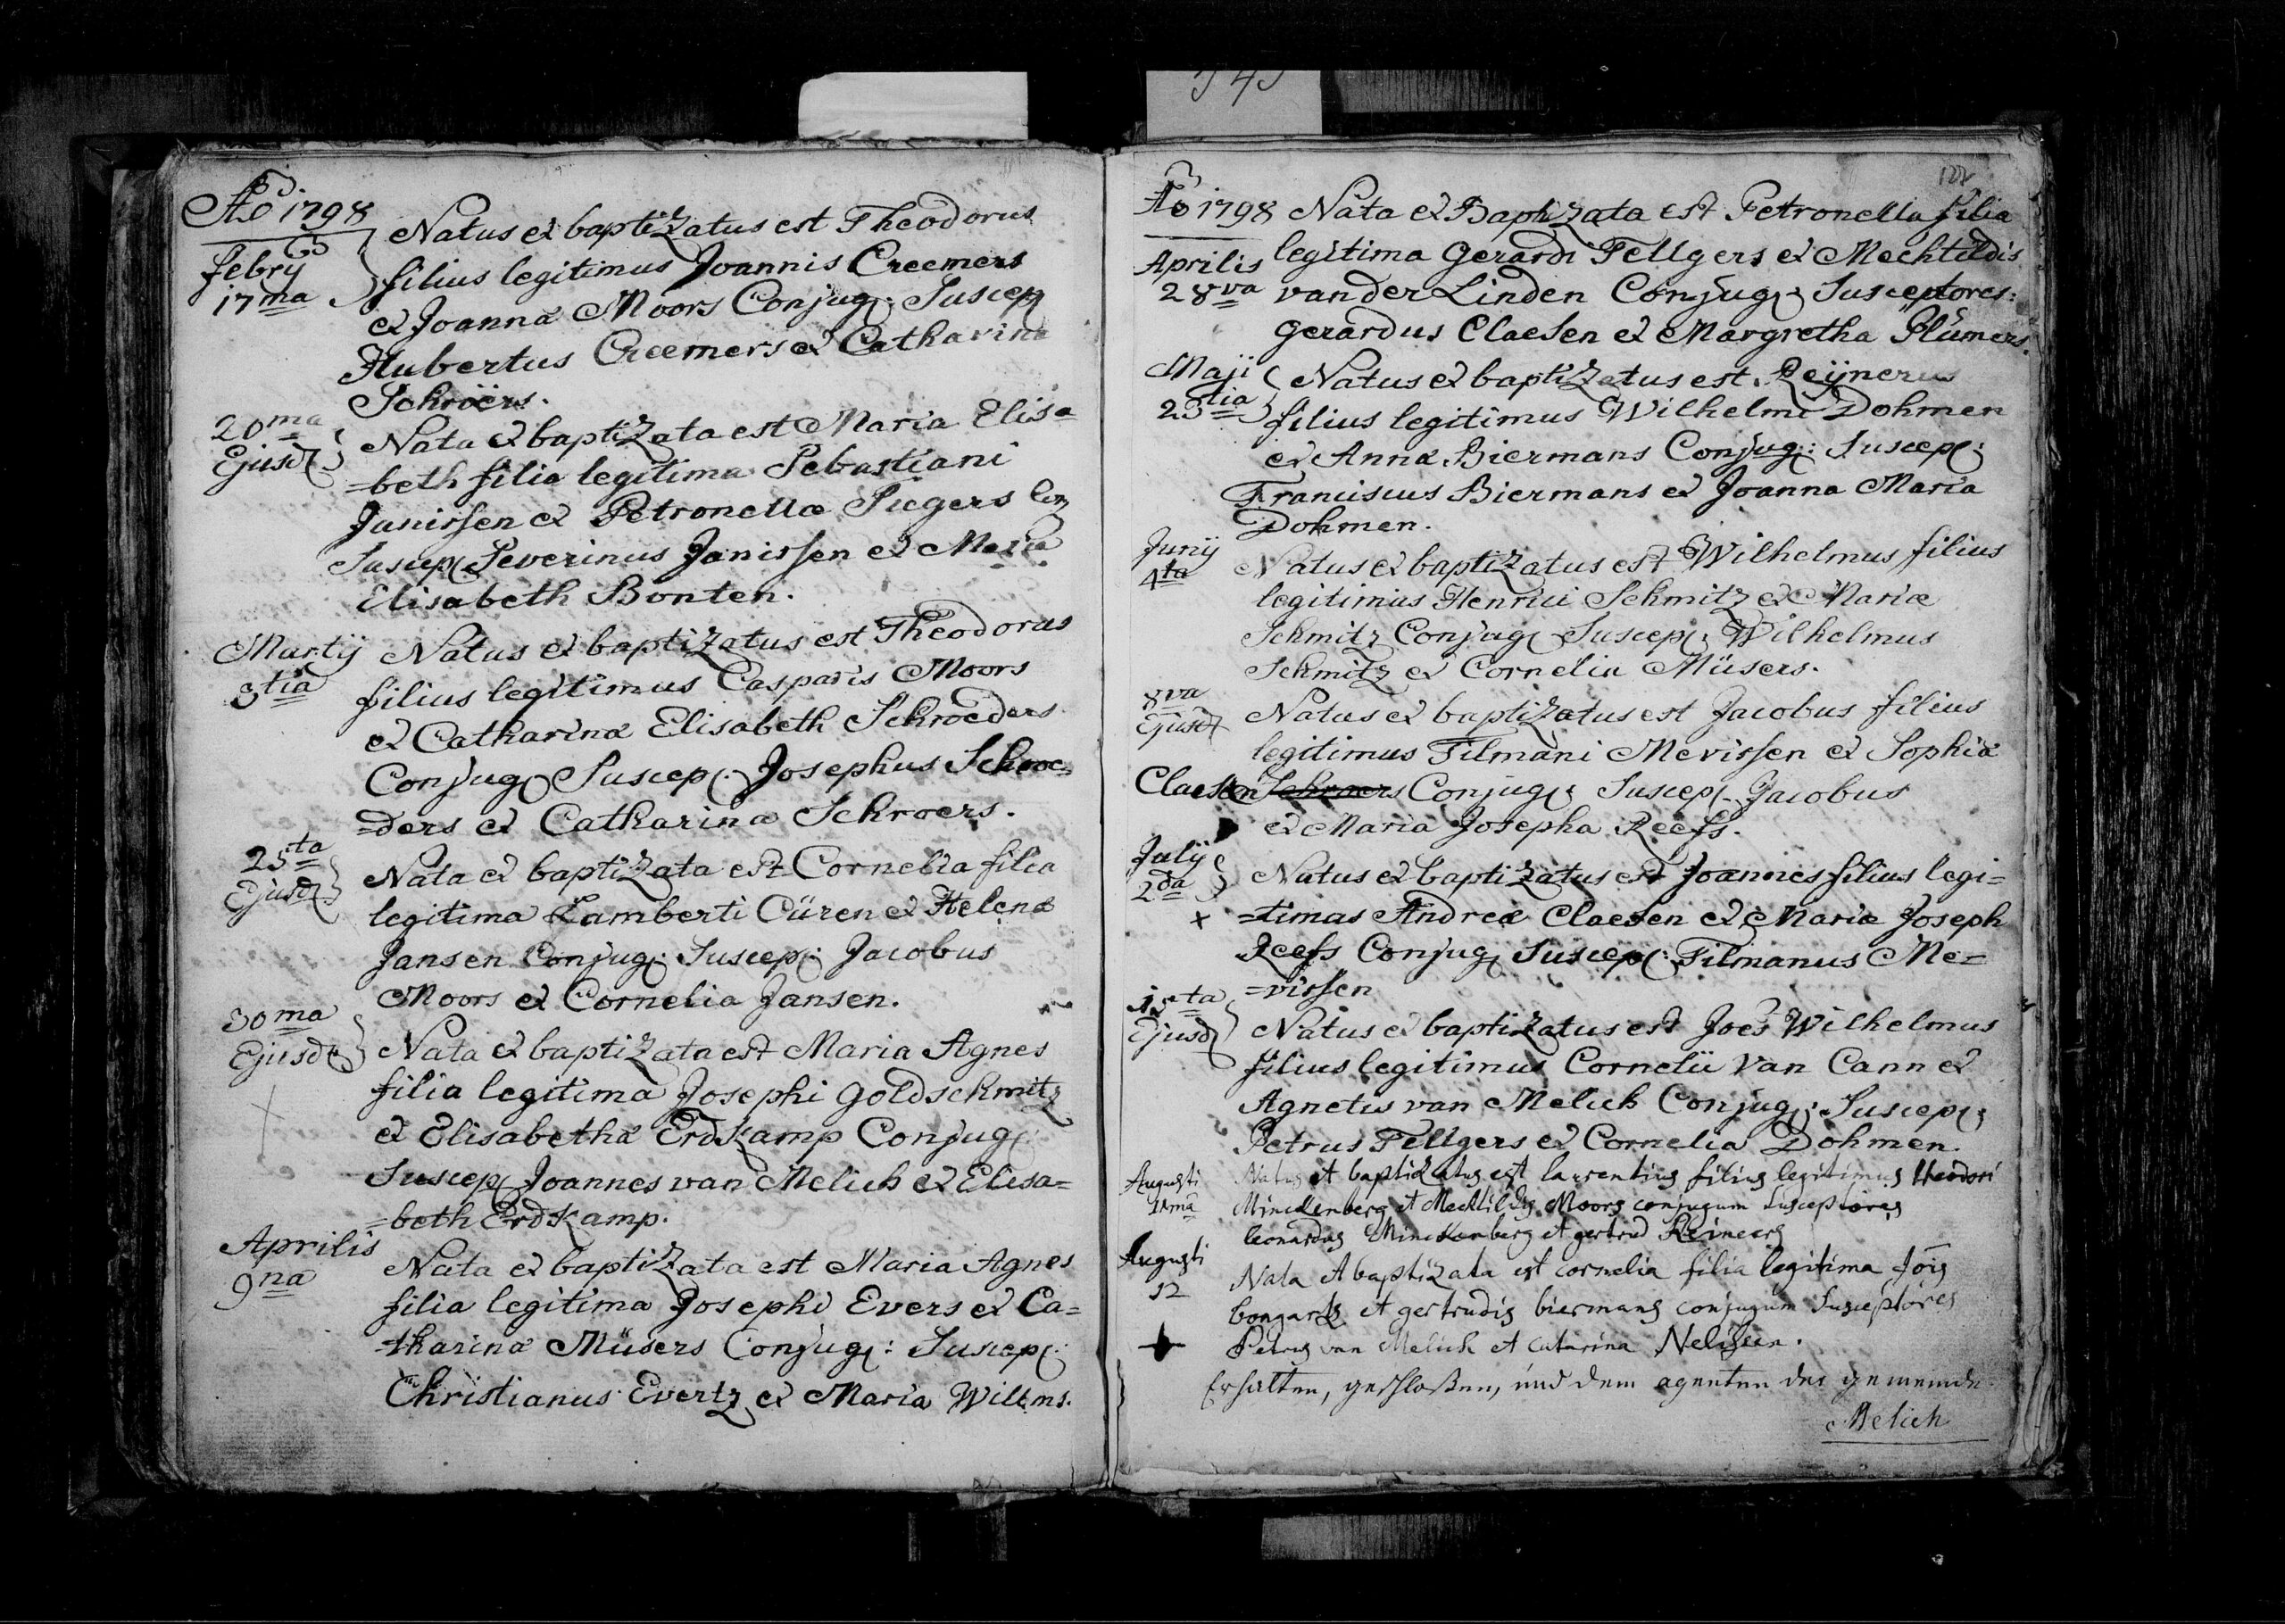 545
Aõ 1798
Natus et baptizatus est Theodorus
Febrij
17ma
filius legitimus Joannis Creemers
et Joannæ Moors Conjug: Suscep
Hubertus Creemers et Catharina
Schröers.
20ma
Ejusd
Nata et baptizata est Maria Elisa=
=beth filia legitima Sebastiani
Janissen et Petronellæ Siegers Con
Suscep Severinus Janissen et Maria
Elisabeth Bonten.
Martij
3tia
Natus et baptizatus est Theodorus
filius legitimus Casparis Moors
et Catharinæ Elisabeth Schroeders
Conjug Suscep. Josephus Schroe=
=ders et Catharina Schroers.
25ta
Ejusd
Nata et baptizata est Cornelia filia
legitima Lamberti Cüren et Helenæ
Jansen Conjug: Suscep: Jacobus
Moors et Cornelia Jansen.
30ma
Ejusd
Nata et baptizata est Maria Agnes
filia legitima Josephi Goldschmitz
et Elisabethæ Erdkamp Conjug
Suscep Joannes van Melich et Elisa=
=beth Erdkamp.
Aprilis
9na
Nata et baptizata est Maria Agnes
filia legitima Josephi Evers et Ca=
=tharinæ Müsers Conjug: Suscep:
Christianus Evertz et Maria Wilms.
122
Aõ 1798
Nata et Baptizata est Petronella filia
Aprilis
28va
legitima Gerardi Fellgers et Mechtildis
van der Linden Conjug: Susceptores:
Gerardus Claesen et Margretha Plümers.
Maji
23tia
Natus et baptizatus est Reijnerus
filius legitimus Wilhelmi Dohmen
et Annæ Biermans Conjug: Suscep:
Franciscus Biermans et Joanna Maria
Dohmen.
Junij
4ta
Natus et baptizatus est Wilhelmus filius
legitimus Henrici Schmitz et Mariæ
Schmitz Conjug Suscep: Wilhelmus
Schmitz et Cornelia Müsers.
8va
Ejusd
Natus et baptizatus est Jacobus filius
legitimus Tilmani Mevissen et Sophiæ
Claesen Schroers Conjug: Suscep. Jacobus
et Maria Josepha Reefs.
Julij
2da
Natus et baptizatus est Joannes filius legi=
=timus Andreæ Claesen et Mariæ Joseph
Reefs Conjug Suscep: Tilmanus Me=
=vissen
15ta
Ejusd
Natus et baptizatus est Joes Wilhelmus
filius legitimus Cornelii van Cann et
Agnetis van Melich Conjug: Suscep:
Petrus Fellgers et Cornelia Dohmen.
Augusti
Natus et baptizatus est laurentius filius legitimus theodori
Minckenberg et Mechtildis Moors conjugum Susceptores
leonardus Minckenberg et gertrud Reineers
Augusti
12
Nata et baptizata est cornelia filia legitima Jois
bongartz et gertrudis biermans conjugum Susceptores
Petrus van Melich et catarina Nelissen.
Erhalten, geschloßen, und dem agenten der gemeinde
Melich